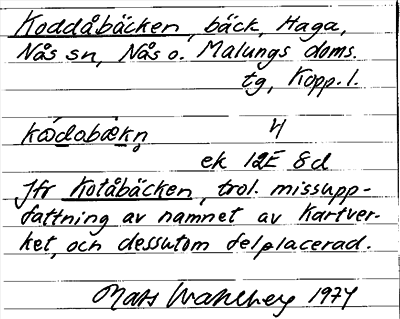 Koddåbäcken, bäck, Haga,
Nås sn, Nås o. Malungs doms.
tg, Kopp. l.
kådobækn̥ 4
ek 12E 8d
Jfr Kotåbäcken, trol. missupp-
fattning av namnet av Kartver-
ket, och dessutom felplacerad.
Mats Wahlberg 1974